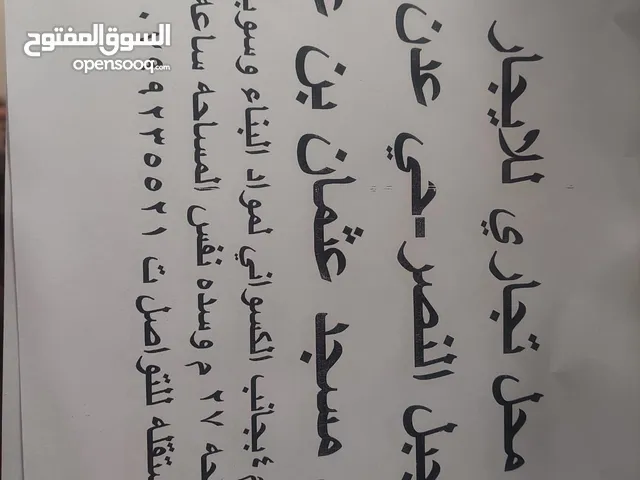 السوق المفتوح
opensooq.com
محل تجاري للايجار
جبل النصر-حي عدن
مسجد عثمان بن
بجانب الكسواني لمواد البناء وسوبر
٢٧ م وسده نفس المساحه ساعة
مستقله للتواصل ت